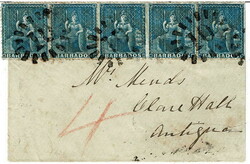 BARBADOS BARBADOS BARBADOS BARBADOS BARBADOS
4
Mrs. Mends
Clare Hall
Antigua